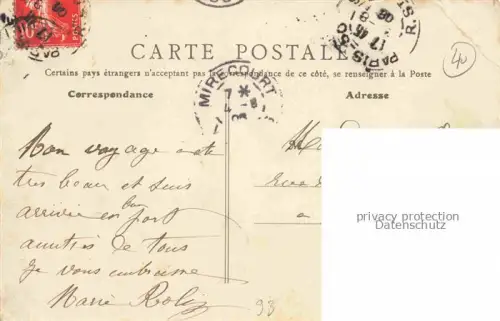 CARTE POSTALE
Certains pays étrangers n'acceptant pas la correspondance de ce côté, se renseigner à la Poste
Correspondance
Adresse
MIRECOURT
7 * 8
PARIS
17 45
40
Mon voyage a été
très beau et suis
arrivée en bon port
amitiés de tous
Je vous embrasse
Marie
93
privacy protection
Datenschutz